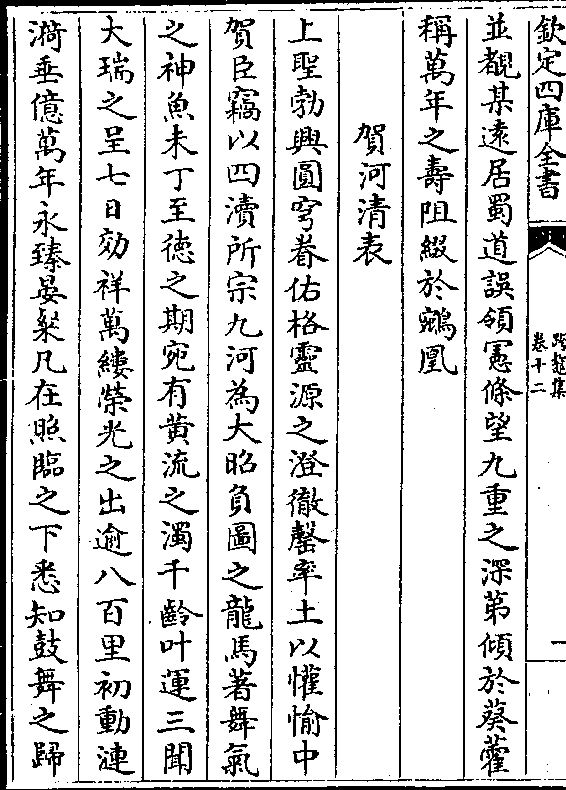 欽定四庫全書
跨鼇集
卷十二
一
並覩某遠居蜀道誤領憲條望九重之深第傾於葵藿
稱萬年之壽阻綴於鵷凰
賀河清表
上聖勃興圓穹眷佑格靈源之澄徹罄率土以懽愉中
賀臣竊以四瀆所宗九河為大昭負圖之龍馬著舞氣
之神魚未丁至徳之期宛有黄流之濁千齡叶運三聞
大瑞之呈七日効祥萬縷榮光之出逾八百里初動漣
漪垂億萬年永臻晏粲凡在照臨之下悉知鼓舞之歸